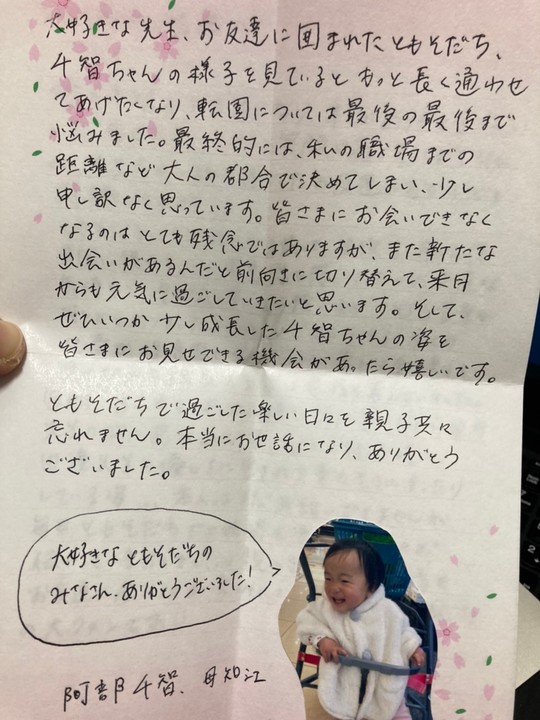 大好きな先生、お友達に囲まれたともそだち、
千智ちゃんの様子を見ているともっと長く通わせ
てあげたくなり、転園については最後の最後まで
悩みました。最終的には、私の職場までの
距離など大人の都合で決めてしまい、少し
申し訳なく思っています。皆さまにお会いできなく
なるのはとても残念ではありますが、また新たな
出会いがあるんだと前向きに切り替えて、来月
からも元気に過ごしていきたいと思います。そして、
ぜひいつか少し成長した千智ちゃんの姿を
皆さまにお見せできる機会があったら嬉しいです。
ともそだちで過ごした楽しい日々を親子共々
忘れません。本当にお世話になり、ありがとう
ございました。
大好きなともそだちの
みなさん、ありがとうございました!
阿部千智、母知江